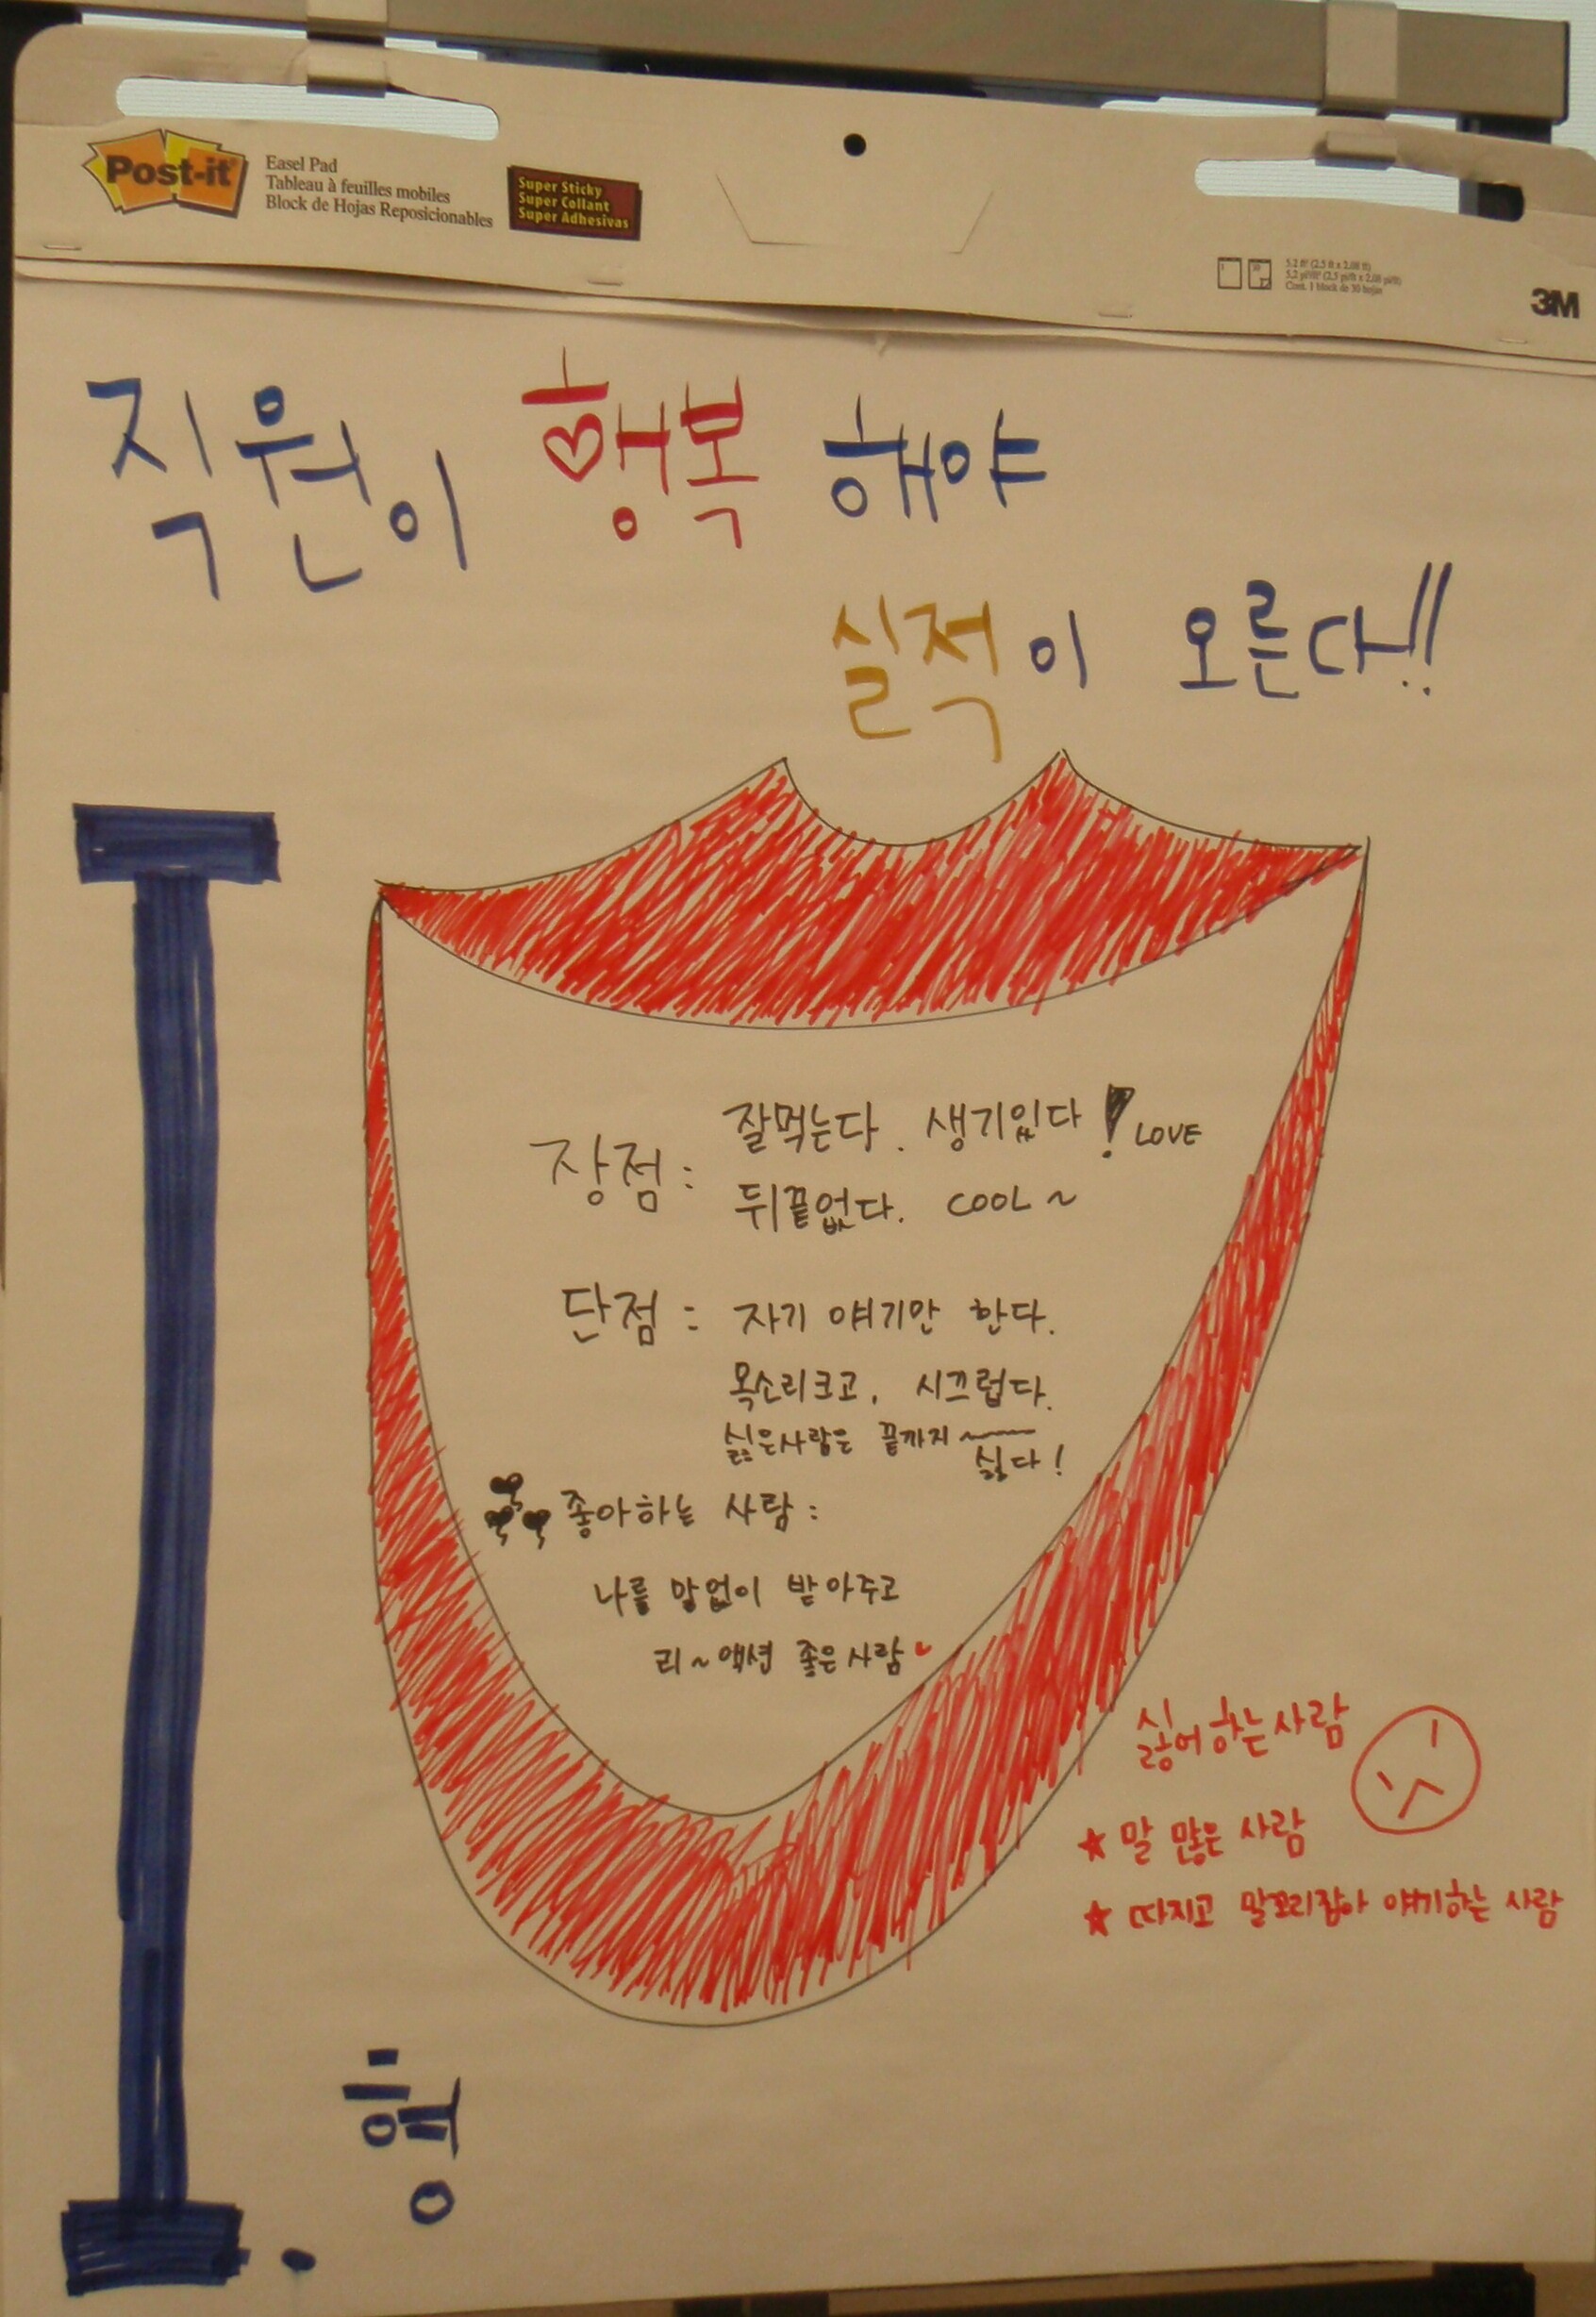 Post-it
Easel Pad
Tableau à feuilles mobiles
Block de Hojas Reposicionables
Super Sticky
Super Collant
Super Adhesivas
5.2 ft² (2.5 ft x 2.08 ft)
5,2 pi/ft² (2,5 pi/ft x 2,08 pi/ft)
Cont. 1 block de 30 hojas
3M
직원이 행복해야
실적이 오른다!!
장점: 잘먹는다. 생기있다! LOVE
뒤끝없다. COOL~
단점: 자기 얘기만 한다.
목소리크고, 시끄럽다.
싫은사람은 끝까지~
싫다!
좋아하는 사람:
나를 말없이 받아주고
리~액션 좋은사람
싫어하는사람
★ 말 많은 사람
★ 따지고 말꼬리잡아 얘기하는 사람
I. 형